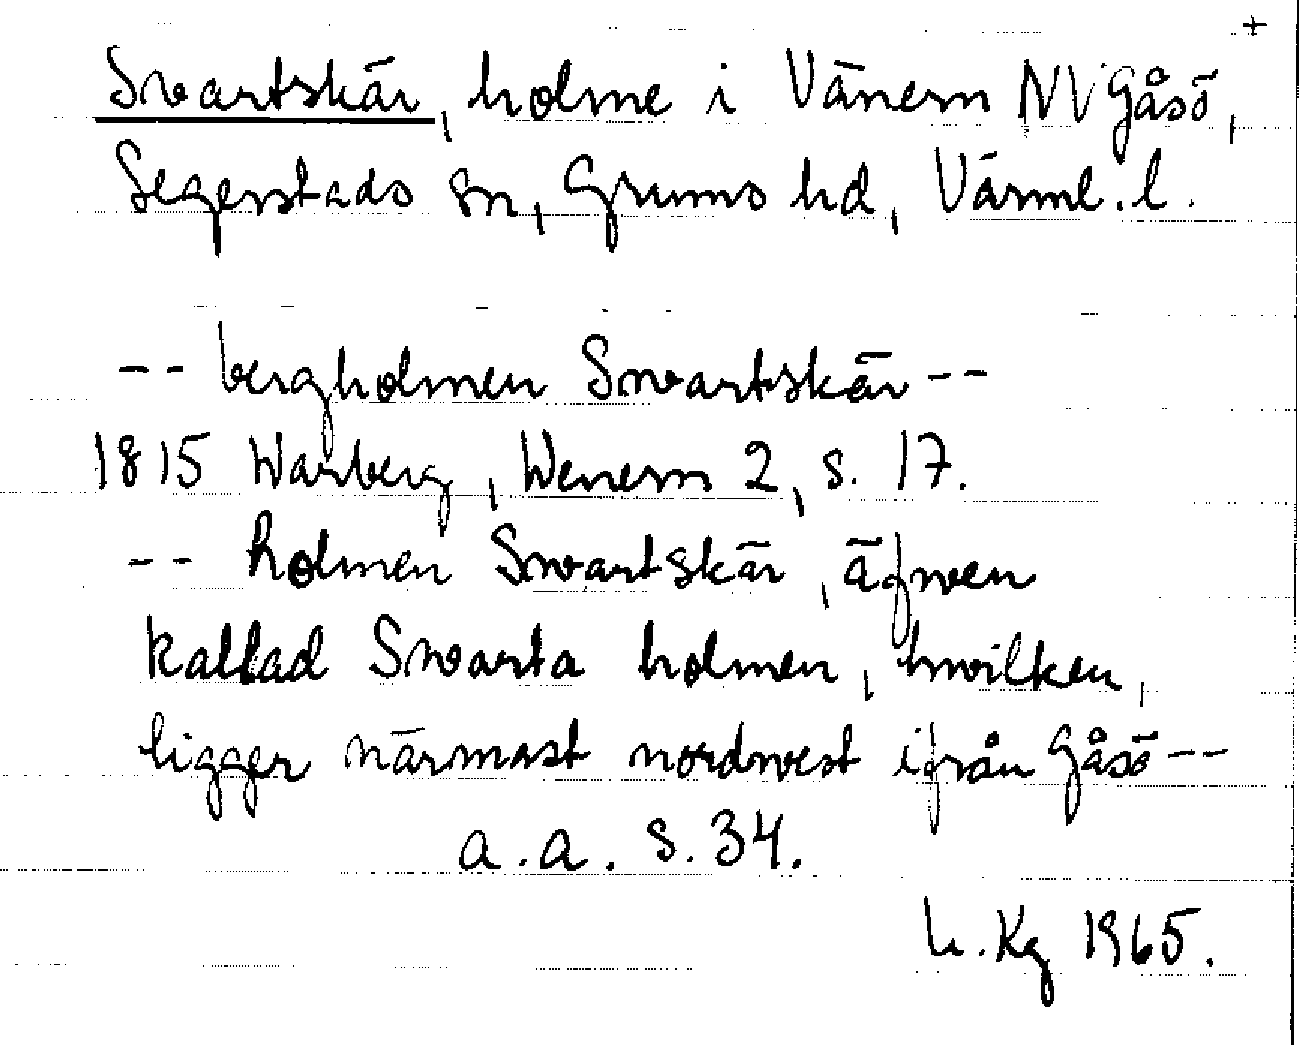 +
Svartskär, holme i Vänern NV Gåsö,
Segerstads sn, Grums hd, Värml. l.
-- bergholmen Swartskär --
1815 Warberg, Wenern 2, s. 17.
-- holmen Swartskär, äfwen
kallad Swarta holmen, hwilken,
ligger närmast nordwest ifrån Gåsö --
a.a. s. 34.
Kg 1965.